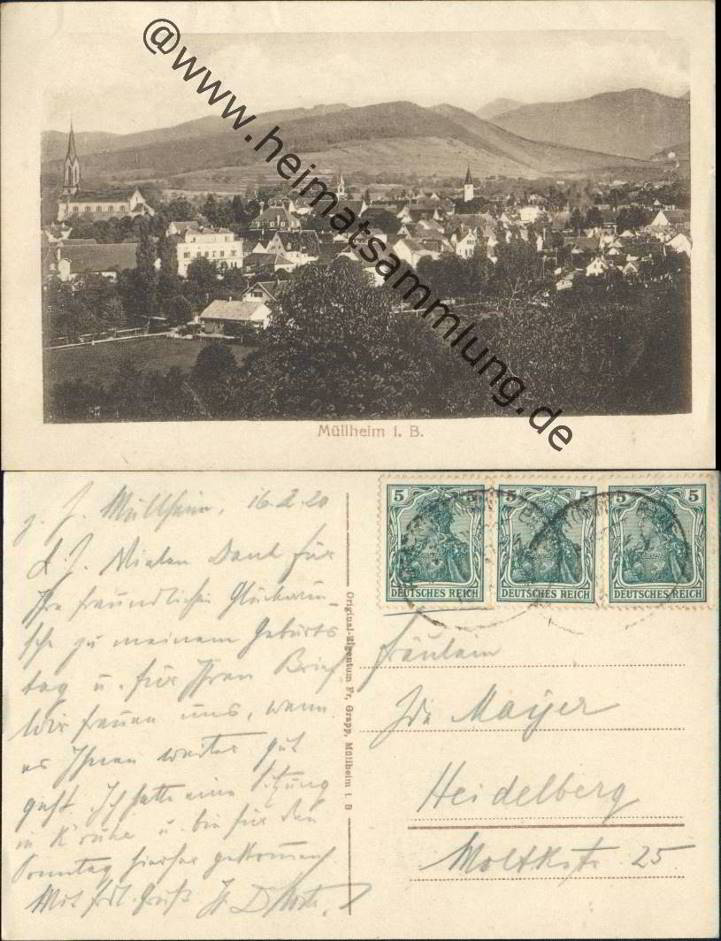 @www.heimatsammlung.de
Müllheim i. B.
5 5 5 5 5 5
DEUTSCHES REICH DEUTSCHES REICH DEUTSCHES REICH
Müllheim, 16.2.20
Vielen Dank für
Ihre freundlichen Glückwün-
sche zu meinem Geburts
tag u. für Ihren Brief
Wir freuen uns, wenn
es Ihnen weiter gut
geht. Ich hatte eine Sitzung
in K'ruhe u. bin für den
Sonntag hierher gekommen
Mit frdl. Gruß Ihr
Original-Eigentum Fr. Grapp, Müllheim i. B
Fräulein
Ida Mayer
Heidelberg
Moltkstr. 25.